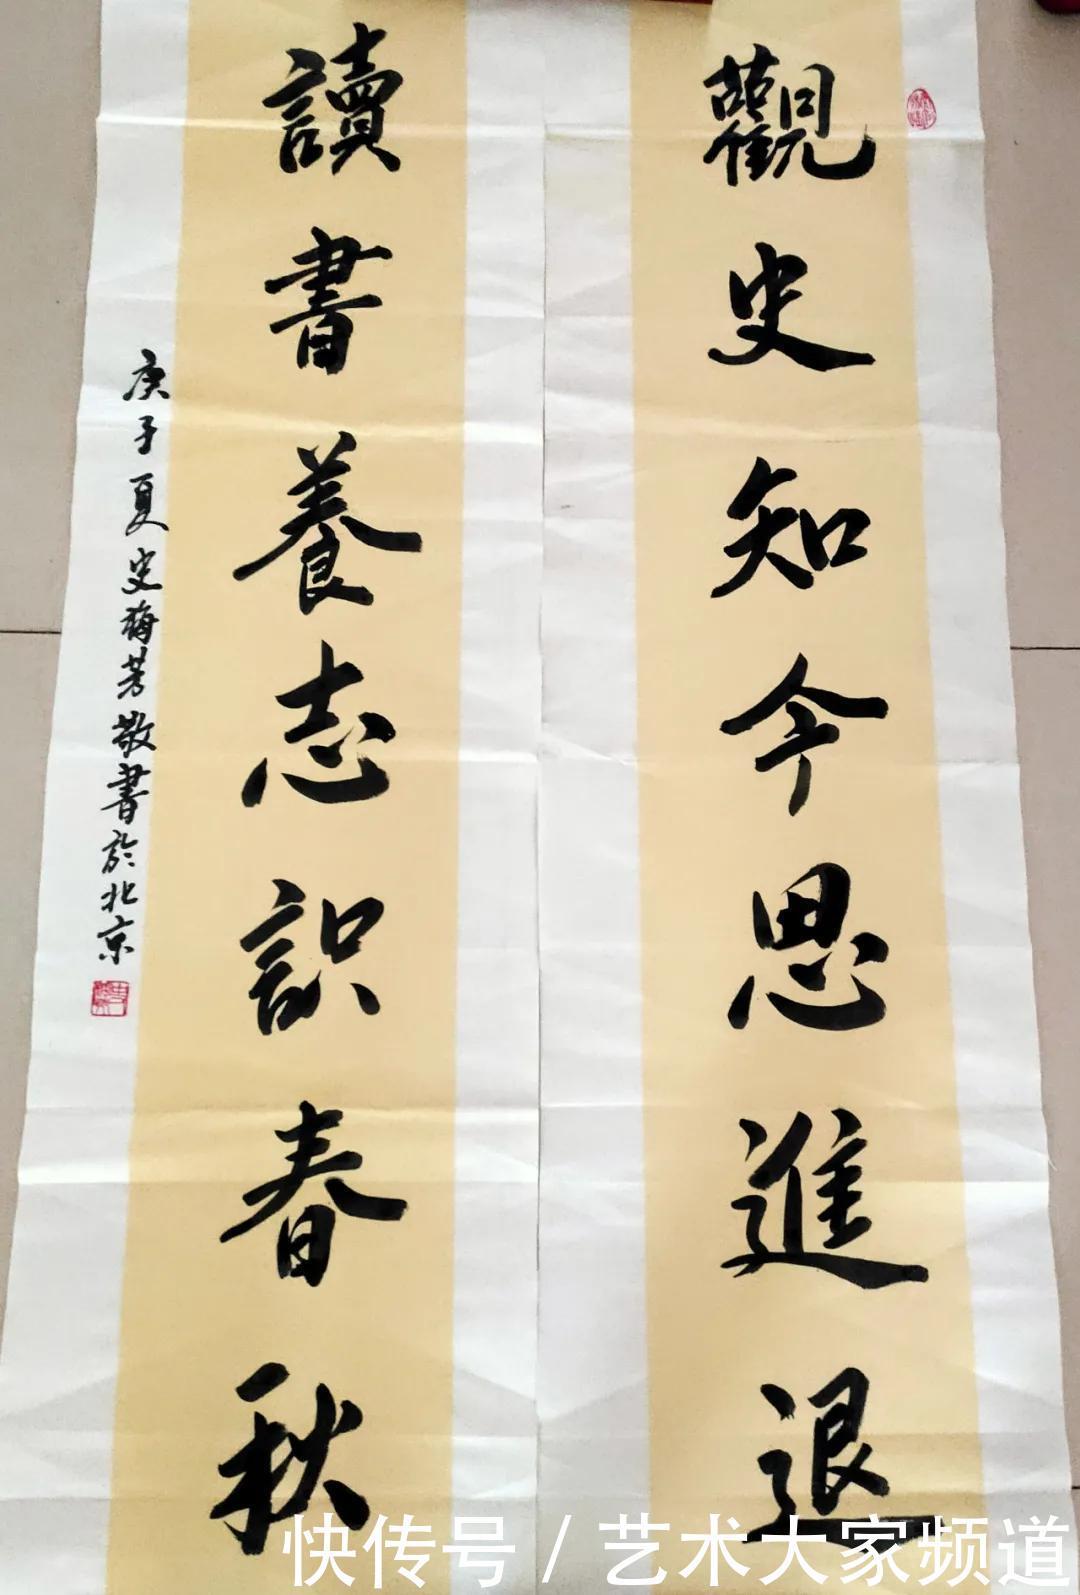 觀史知今思進退
讀書養志識春秋
庚子夏史梅芳敬書於北京
快传号 / 艺术大家频道